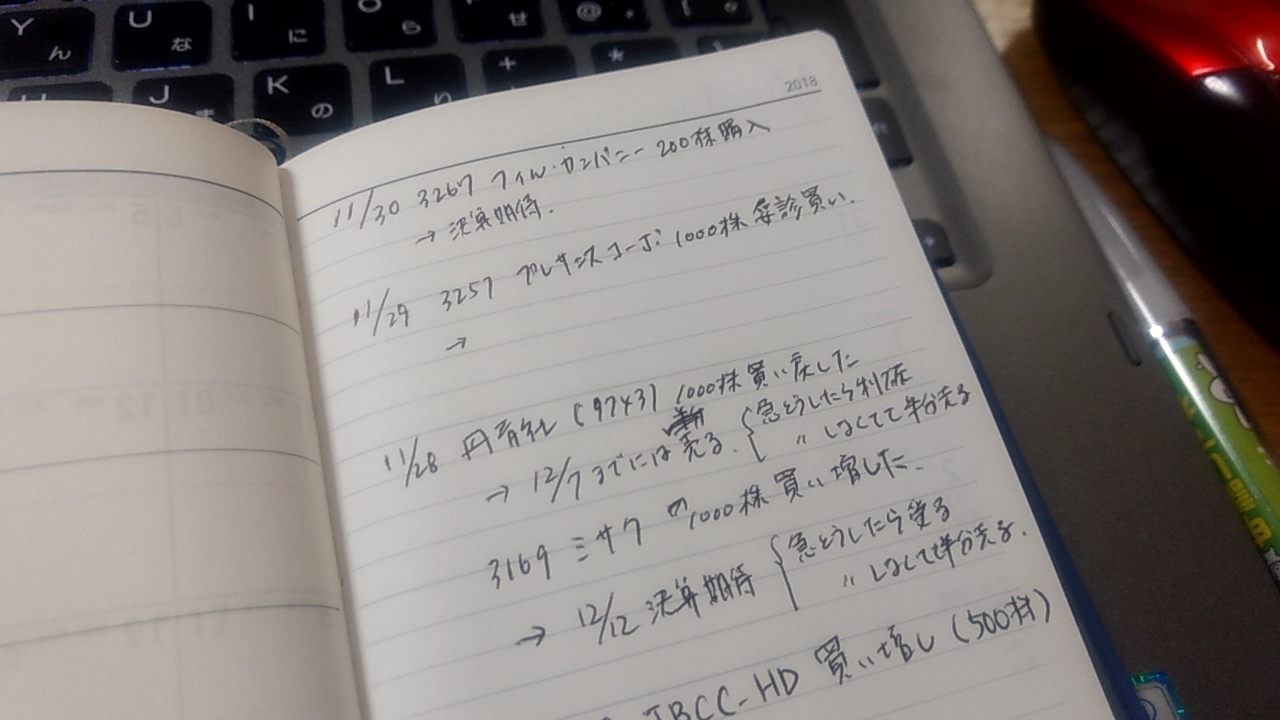 Y ん
U な
I に
O ら
P せ
@
J
K の
L り
+
*
2018
11/30 3267 フィル・カンパニー 200株購入
→ 決算期待.
11/29 3257 プレサンスコーポ 1000株 打診買い.
→
11/28 丹青社 (9743) 1000株 買い戻した
→ 12/7までには 売る. 急どうしたら利確
〃 しなくても半分売る
3169 ミサワ 1000株 買い増した.
→ 12/12 決算期待 急どうしたら売る
〃 しなくても半分売る.
JBCC-HD 買い増し (500株)